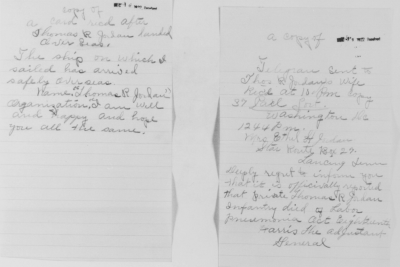 copy of
a card mailed after
Thomas R Jalan landed
Over Seas.
The ship on which I
sailed has arrived
safely over seas
Name Thomas R Jalan
Organization, I am well
and Happy and hope
you all the same.
a copy of
Telegram sent to
Thos R Jalans Wife
Recd at 12 Pm
37
Washington DC
1244 Pm.
Mrs
Star Route Box 29
Lansing Tenn
Deeply regret to inform you
that it is officially reported
that private Thomas R Jalan
Infantry died of Lobar
pneumonia Oct Eighteenth
Harris the adjutant
General